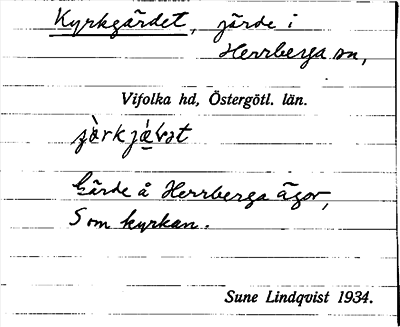 Kyrkgärdet, gärde i
Herrberga sn,
Vifolka hd, Östergötl. län.
Gärde å Herrberga ägor,
S om kyrkan.
Sune Lindqvist 1934.